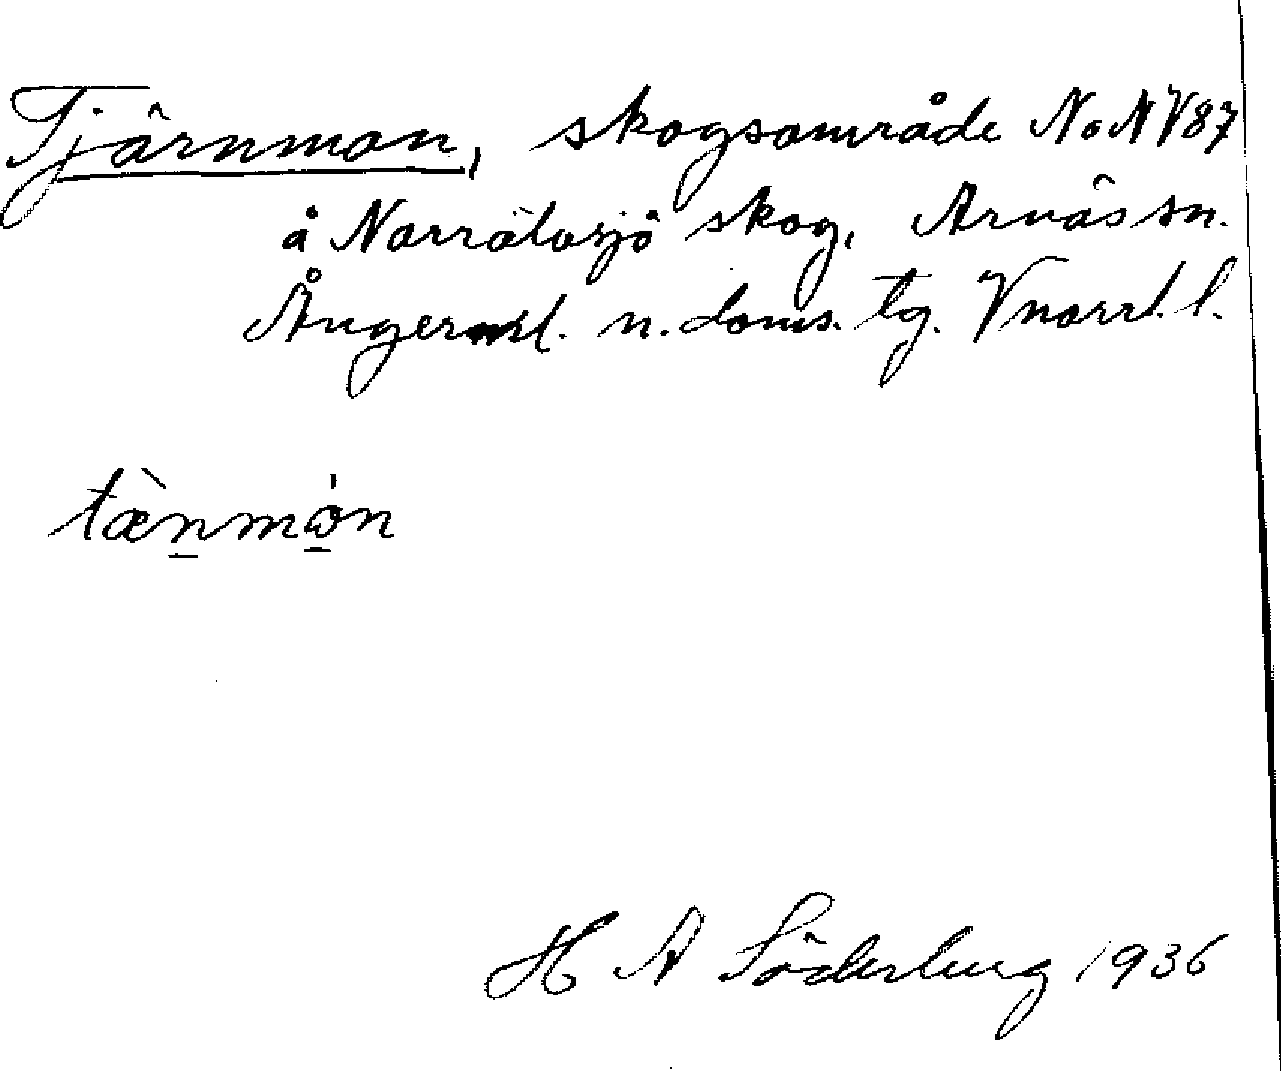 Tjärnmon, skogsområde No N V 87
å Norrälasjö skog, Arnäs sn.
Ångerml. n. doms. tg. Vnorrl. l.
tæ̀n̠mò̠n
H A Söderberg 1936